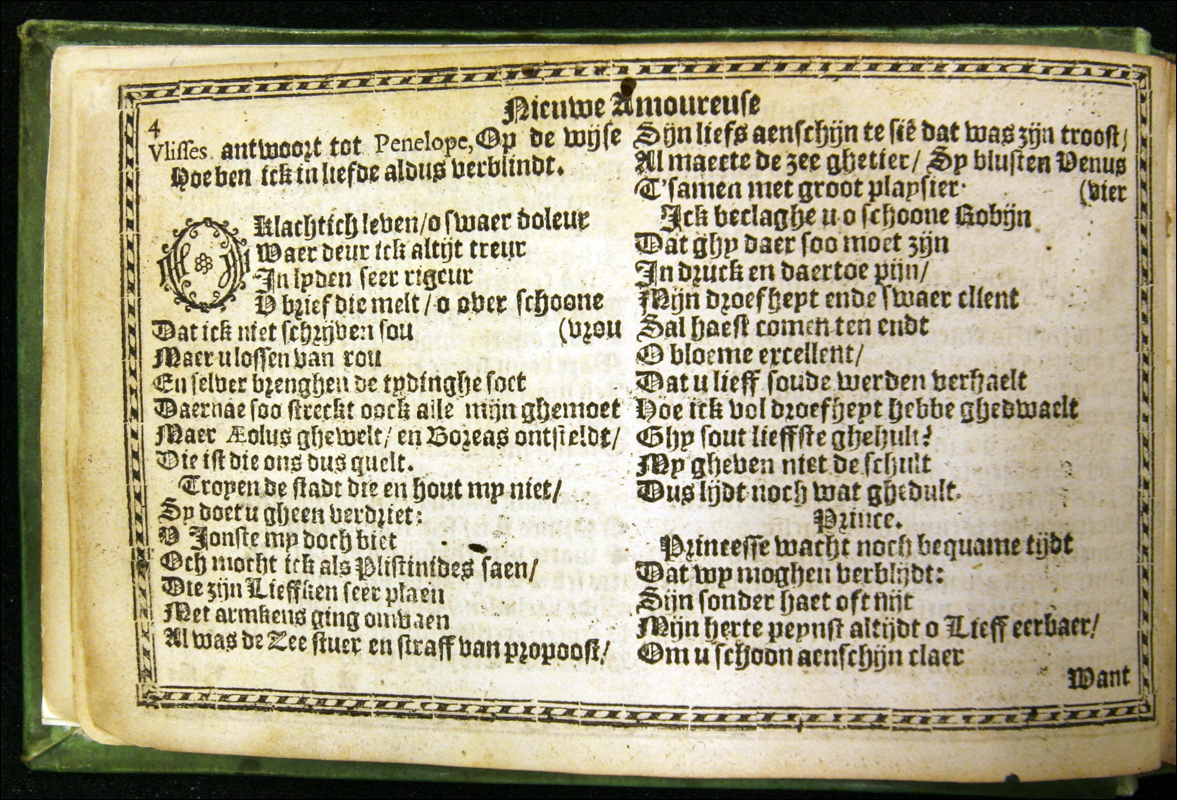 Nieuwe Amoureuse
4
Vlisses. antwoort tot Penelope, Op de wijse
Hoe ben ick in liefde aldus verblindt.
O Klachtich leven/ o swaer doleur
Waer deur ick altijt treur
In lyden seer rigeur
V brief die melt/ o over schoone
Dat ick niet schrijven sou (vrou
Maer u lossen van rou
En selver brenghen de tydinghe soet
Daernae soo streckt oock alle mijn ghemoet
Maer Æolus ghewelt/ en Boreas ontsteldt/
Die ist die ons dus quelt.
Troyen de stadt die en hout my niet/
Sy doet u gheen verdriet:
V Jonste my doch biet
Och mocht ick als Plistinides saen/
Die zijn Lieffken seer plaen
Met armkens ging omvaen
Al was de Zee stuer en straff van propoost/
Sijn liefs aenschijn te siê dat was zijn troost/
Al maecte de zee ghetier/ Sy blusten Venus
T'samen met groot playsier· (vier
Ick beclaghe u o schoone Robijn
Dat ghy daer soo moet zijn
In druck en daertoe pijn/
Mijn droefheyt ende swaer ellent
Sal haest comen ten endt
O bloeme excellent/
Dat u lieff soude werden verhaelt
Hoe ick vol droefheyt hebbe ghedwaelt
Ghy sout lieffste ghehult:
My gheven niet de schult
Dus lijdt noch wat ghedult.
Prince.
Princesse wacht noch bequame tijdt
Dat wy moghen verblijdt:
Sijn sonder haet oft nijt
Mijn herte peynst altijdt o Lieff eerbaer/
Om u schoon aenschijn claer
Want